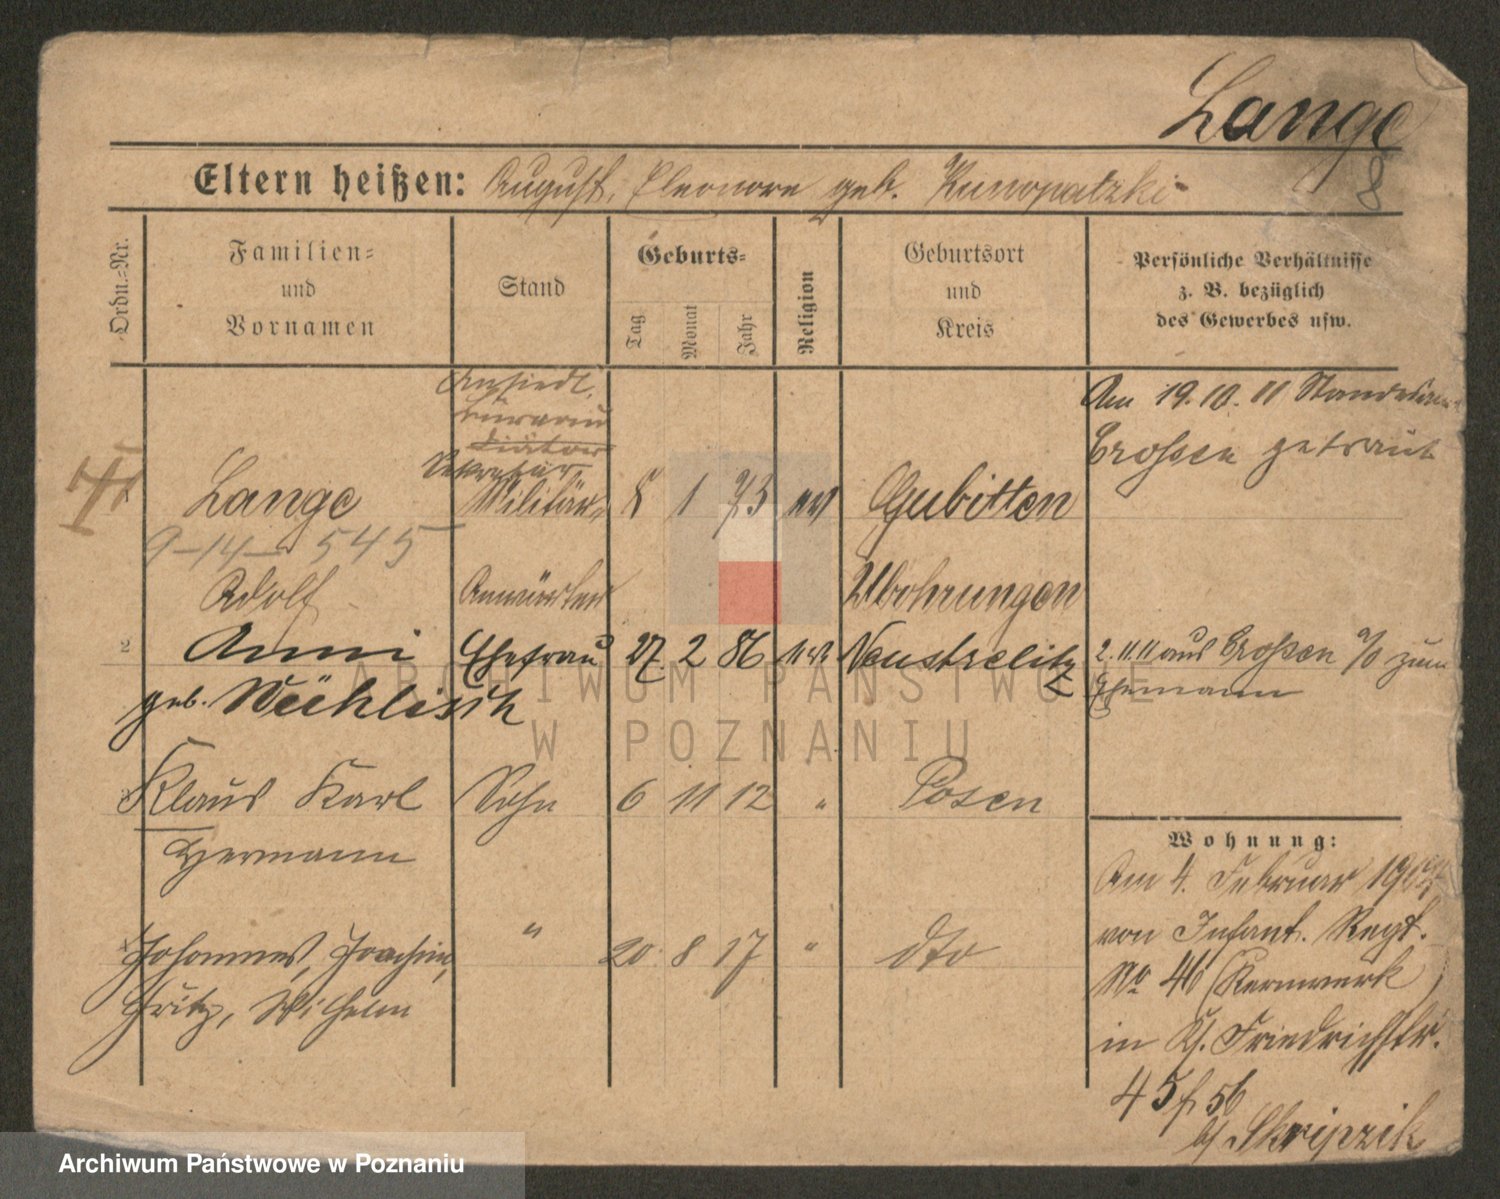 Lange
8
Eltern heißen: August, Eleonore geb. Kunopatzki
Ordn.=Nr.
Familien=
und
Vornamen
Stand
Geburts=
Tag
Monat
Jahr
Religion
Geburtsort
und
Kreis
Persönliche Verhältnisse
z. B. bezüglich
des Gewerbes usw.
Ansiedl.
Diätar
Sekretär,
Am 19.10.11 Standesam
Crossen getraut
Lange Militär= 8 1 73 ev Gubitten
9-14- 545
Adolf Anwärter Mohrungen
2 Anni Ehefrau 27 2 86 ev Neustrelitz 2.11.11 aus Crossen a/O zum
geb. Wühlisch Ehemann
Klaus Karl Sohn 6 11 12 " Posen
Hermann
Johannes, Joachim, " 20. 8 17 " dto
Fritz, Wilhelm
Wohnung:
Am 4. Februar
von Infant. Regt.
No 46 (Kernwerk)
in Friedrichstr.
45
b/ Skripzik
ARCHIWUM PAŃSTWOWE
W POZNANIU
Archiwum Państwowe w Poznaniu